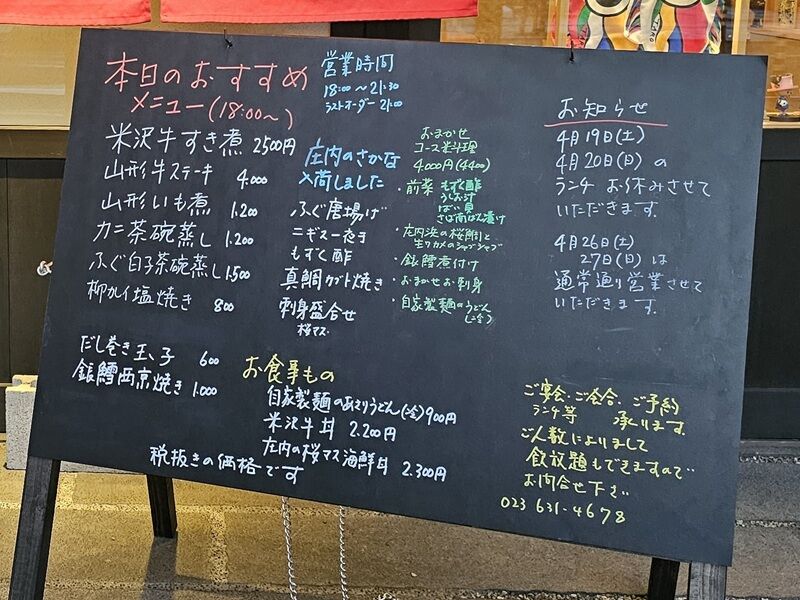 本日のおすすめ
メニュー(18:00〜)
営業時間
18:00〜21:30
ラストオーダー 21:00
米沢牛すき煮 2500円
山形牛ステーキ 4.000
山形いも煮 1.200
カニ茶碗蒸し 1.200
ふぐ白子茶碗蒸し 1.500
柳カレイ塩焼き 800
だし巻き玉子 600
銀鱈西京焼き 1.000
庄内のさかな
入荷しました
ふぐ唐揚げ
ニギス一夜干
もずく酢
真鯛カブト焼き
刺身盛合せ
桜マス
おまかせ
コース料理
4000円(4400)
・前菜 もずく酢
うしお汁
ばい貝
さば南ばん漬け
・庄内浜の桜鯛と
生ワカメのシャブシャブ
・銀鱈煮付け
・おまかせお刺身
・自家製麺のうどん
(冷)
お食事もの
自家製麺のあさりうどん(冷)900円
米沢牛丼 2.200円
庄内の桜マス海鮮丼 2.300円
税抜きの価格です
お知らせ
4月19日(土)
4月20日(日)の
ランチ お休みさせて
いただきます。
4月26日(土)
27日(日)は
通常通り営業させて
いただきます。
ご宴会、ご会合、ご予約
ランチ等 承ります。
ご人数によりまして
飲放題もできますので
お問合せ下さい
023 631-4678